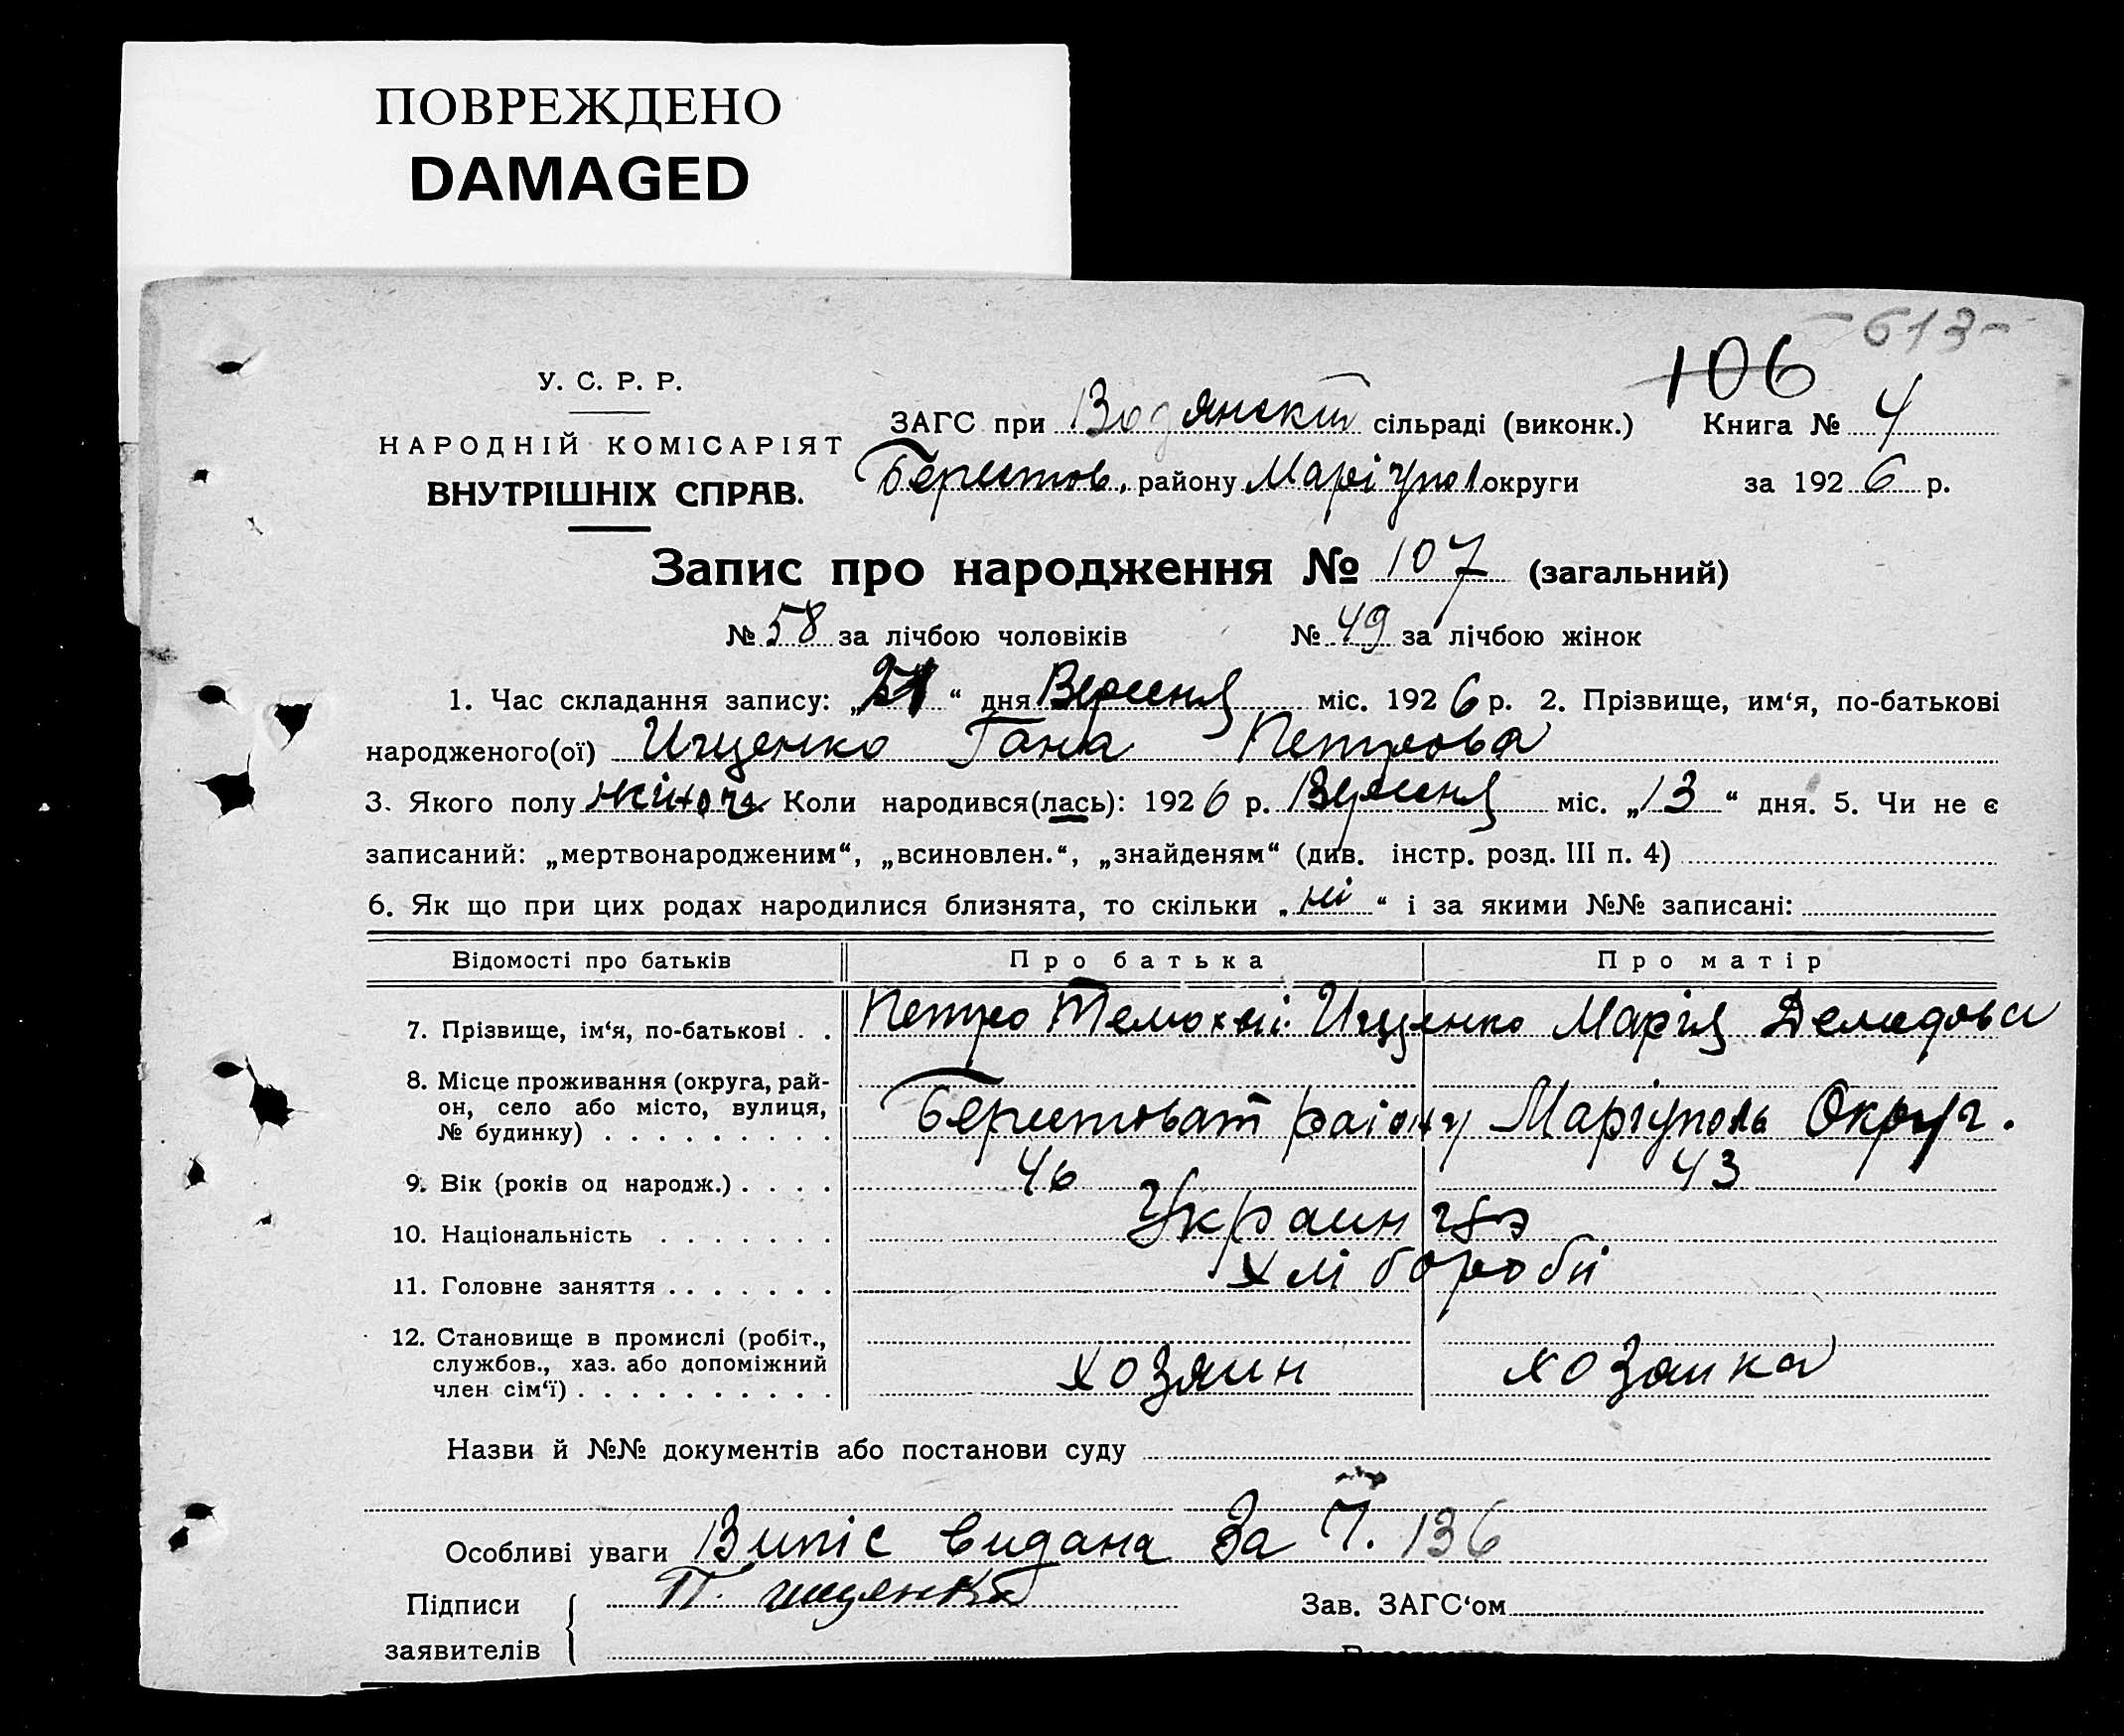 ПОВРЕЖДЕНО
DAMAGED
-613-
106
У. С. Р. Р.
НАРОДНІЙ КОМІСАРІЯТ
ВНУТРІШНІХ СПРАВ.
ЗАГС при Водянскій сільраді (виконк.) Книга № 4
Берестов. району Маріупол округи за 1926 р.
Запис про народження № 107 (загальний)
№ 58 за лічбою чоловіків № 49 за лічбою жінок
1. Час складання запису: „ “ дня Вересня міс. 1926 р. 2. Прізвище, им‘я, по-батькові
народженого(ої) Ищенко Гана Петрова
3. Якого полу жіноч. Коли народився(лась): 1926 р. Вересня міс. „13“ дня. 5. Чи не є
записаний: „мертвонародженим“, „всиновлен.“, „знайденям“ (див. інстр. розд. III п. 4)
6. Як що при цих родах народилися близнята, то скільки „ні“ і за якими №№ записані:
Відомості про батьків Про батька Про матір
7. Прізвище, ім‘я, по-батькові . . Петро Ищенко Марія Демидова
8. Місце проживання (округа, рай-
он, село або місто, вулиця,
№ будинку) . . . . . . . . . Берестоват району Маріуполь Округ.
9. Вік (років од народж.) . . . . 46 43
10. Національність . . . . . . . Украинцэ
11. Головне заняття . . . . . . . Хліборобі
12. Становище в промислі (робіт.,
службов., хаз. або допоміжний
член сім‘ї) . . . . . . . . . . хозяин хозаика
Назви й №№ документів або постанови суду
Особливі уваги Випіс видана За 136
Підписи П. ищенко Зав. ЗАГС‘ом
заявителів